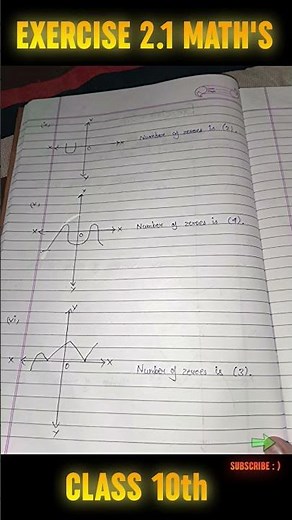 EXERCISE 2.1 MATH'S
Number of zeroes is (2).
Number of zeroes is (4).
(vi),
Number of zeroes is (3).
SUBSCRIBE : )
CLASS 10th